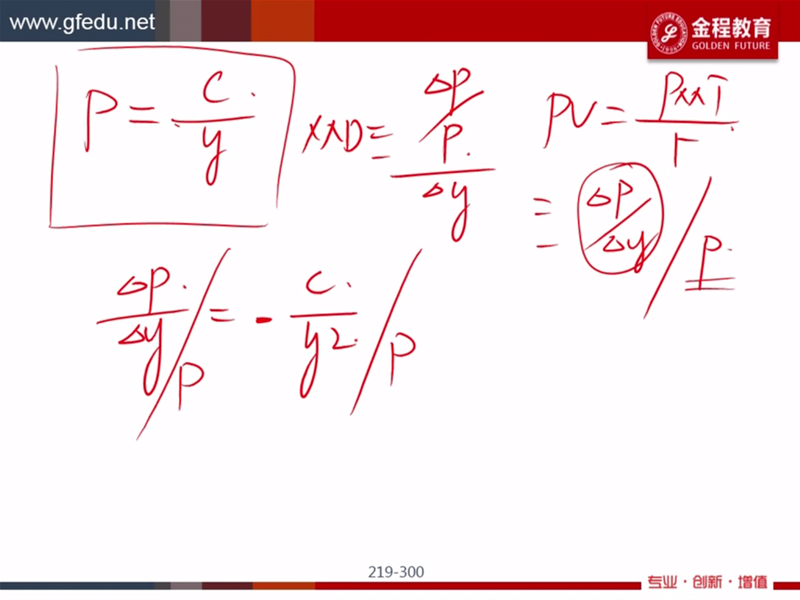 www.gfedu.net
金程教育
GOLDEN FUTURE
P = C / y
MD = ΔP/P / Δy
PV = PMT / r
= ΔP/Δy / P
ΔP/Δy / P = - C/y2 / P
219-300
专业·创新·增值